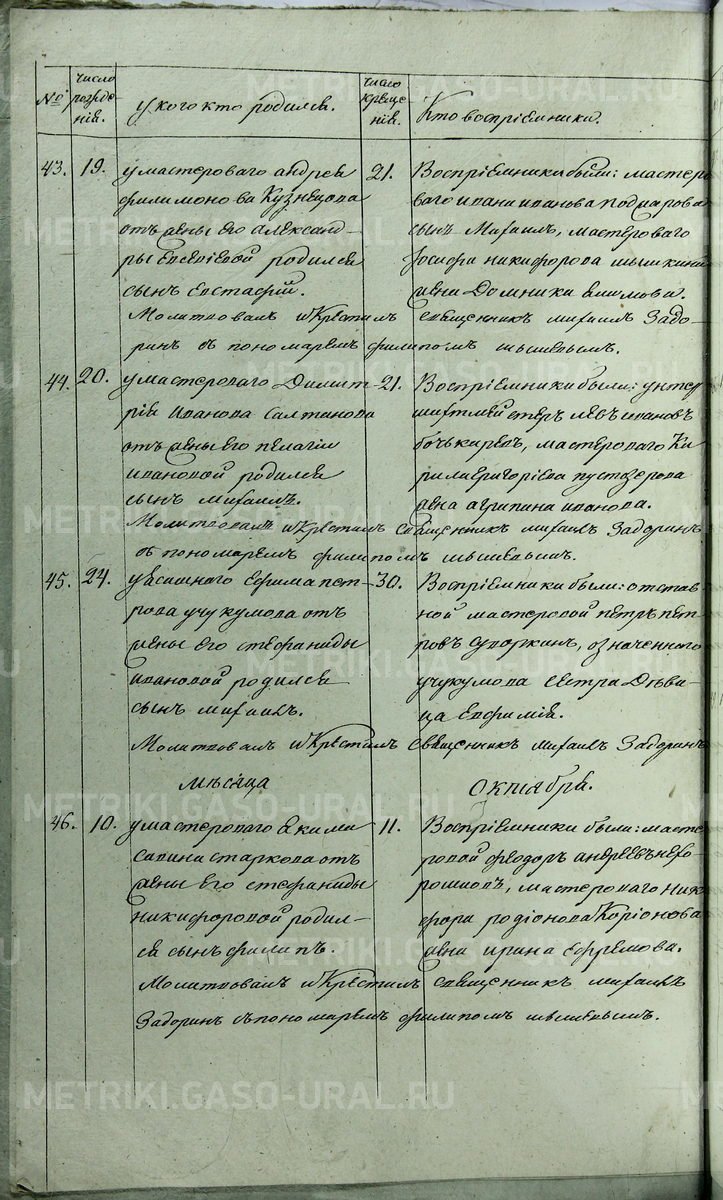 №
число рожде нія.
у кого кто родился.
число креще нія.
Кто воспріемники.
43. 19. у мастероваго андрея
филимонова Кузнецова
отъ жены его александ-
ры евсевіевой родился
сынъ евстафій.
21. Воспріемники были: мастеро
ваго ивана иванова
сынъ Михаилъ, мастероваго
Іосифа никифорова
жена Домника
Молитвовалъ и Крестилъ священникъ михаилъ Задо-
ринъ съ пономаремъ филипомъ
44. 20. у мастероваго Димит-
рія иванова Салтанова
отъ жены его пелагіи
ивановой родился
сынъ михаилъ.
21. Воспріемники были: унтер
шихтмейстеръ левъ ивановъ
бочькаревъ, мастероваго Ки
рила григоріева пустозерова
жена агрипина иванова.
Молитвовалъ и Крестилъ священникъ михаилъ Задоринъ
съ пономаремъ филипомъ
45. 24. ефима пет-
рова учукумова отъ
жены его стефаниды
ивановой родился
сынъ михаилъ.
30. Воспріемники были: отстав
ной мастеровой петръ пет
ровъ означеннаго
учукумова сестра Дѣви
ца Евфимія.
Молитвовалъ и Крестилъ священникъ михаилъ Задоринъ
мѣсяца Октября.
46. 10. у мастероваго екима
савина старкова отъ
жены его стефаниды
никифоровой родил-
ся сынъ филипъ.
11. Воспріемники были: масте
ровой феодоръ андреевъ нехо-
рошковъ, мастероваго ники
фора родіонова Коріонова
жена ирина Ефремова.
Молитвовалъ и Крестилъ священникъ михаилъ
Задоринъ съ пономаремъ филипомъ
METRIKI.GASO-URAL.RU